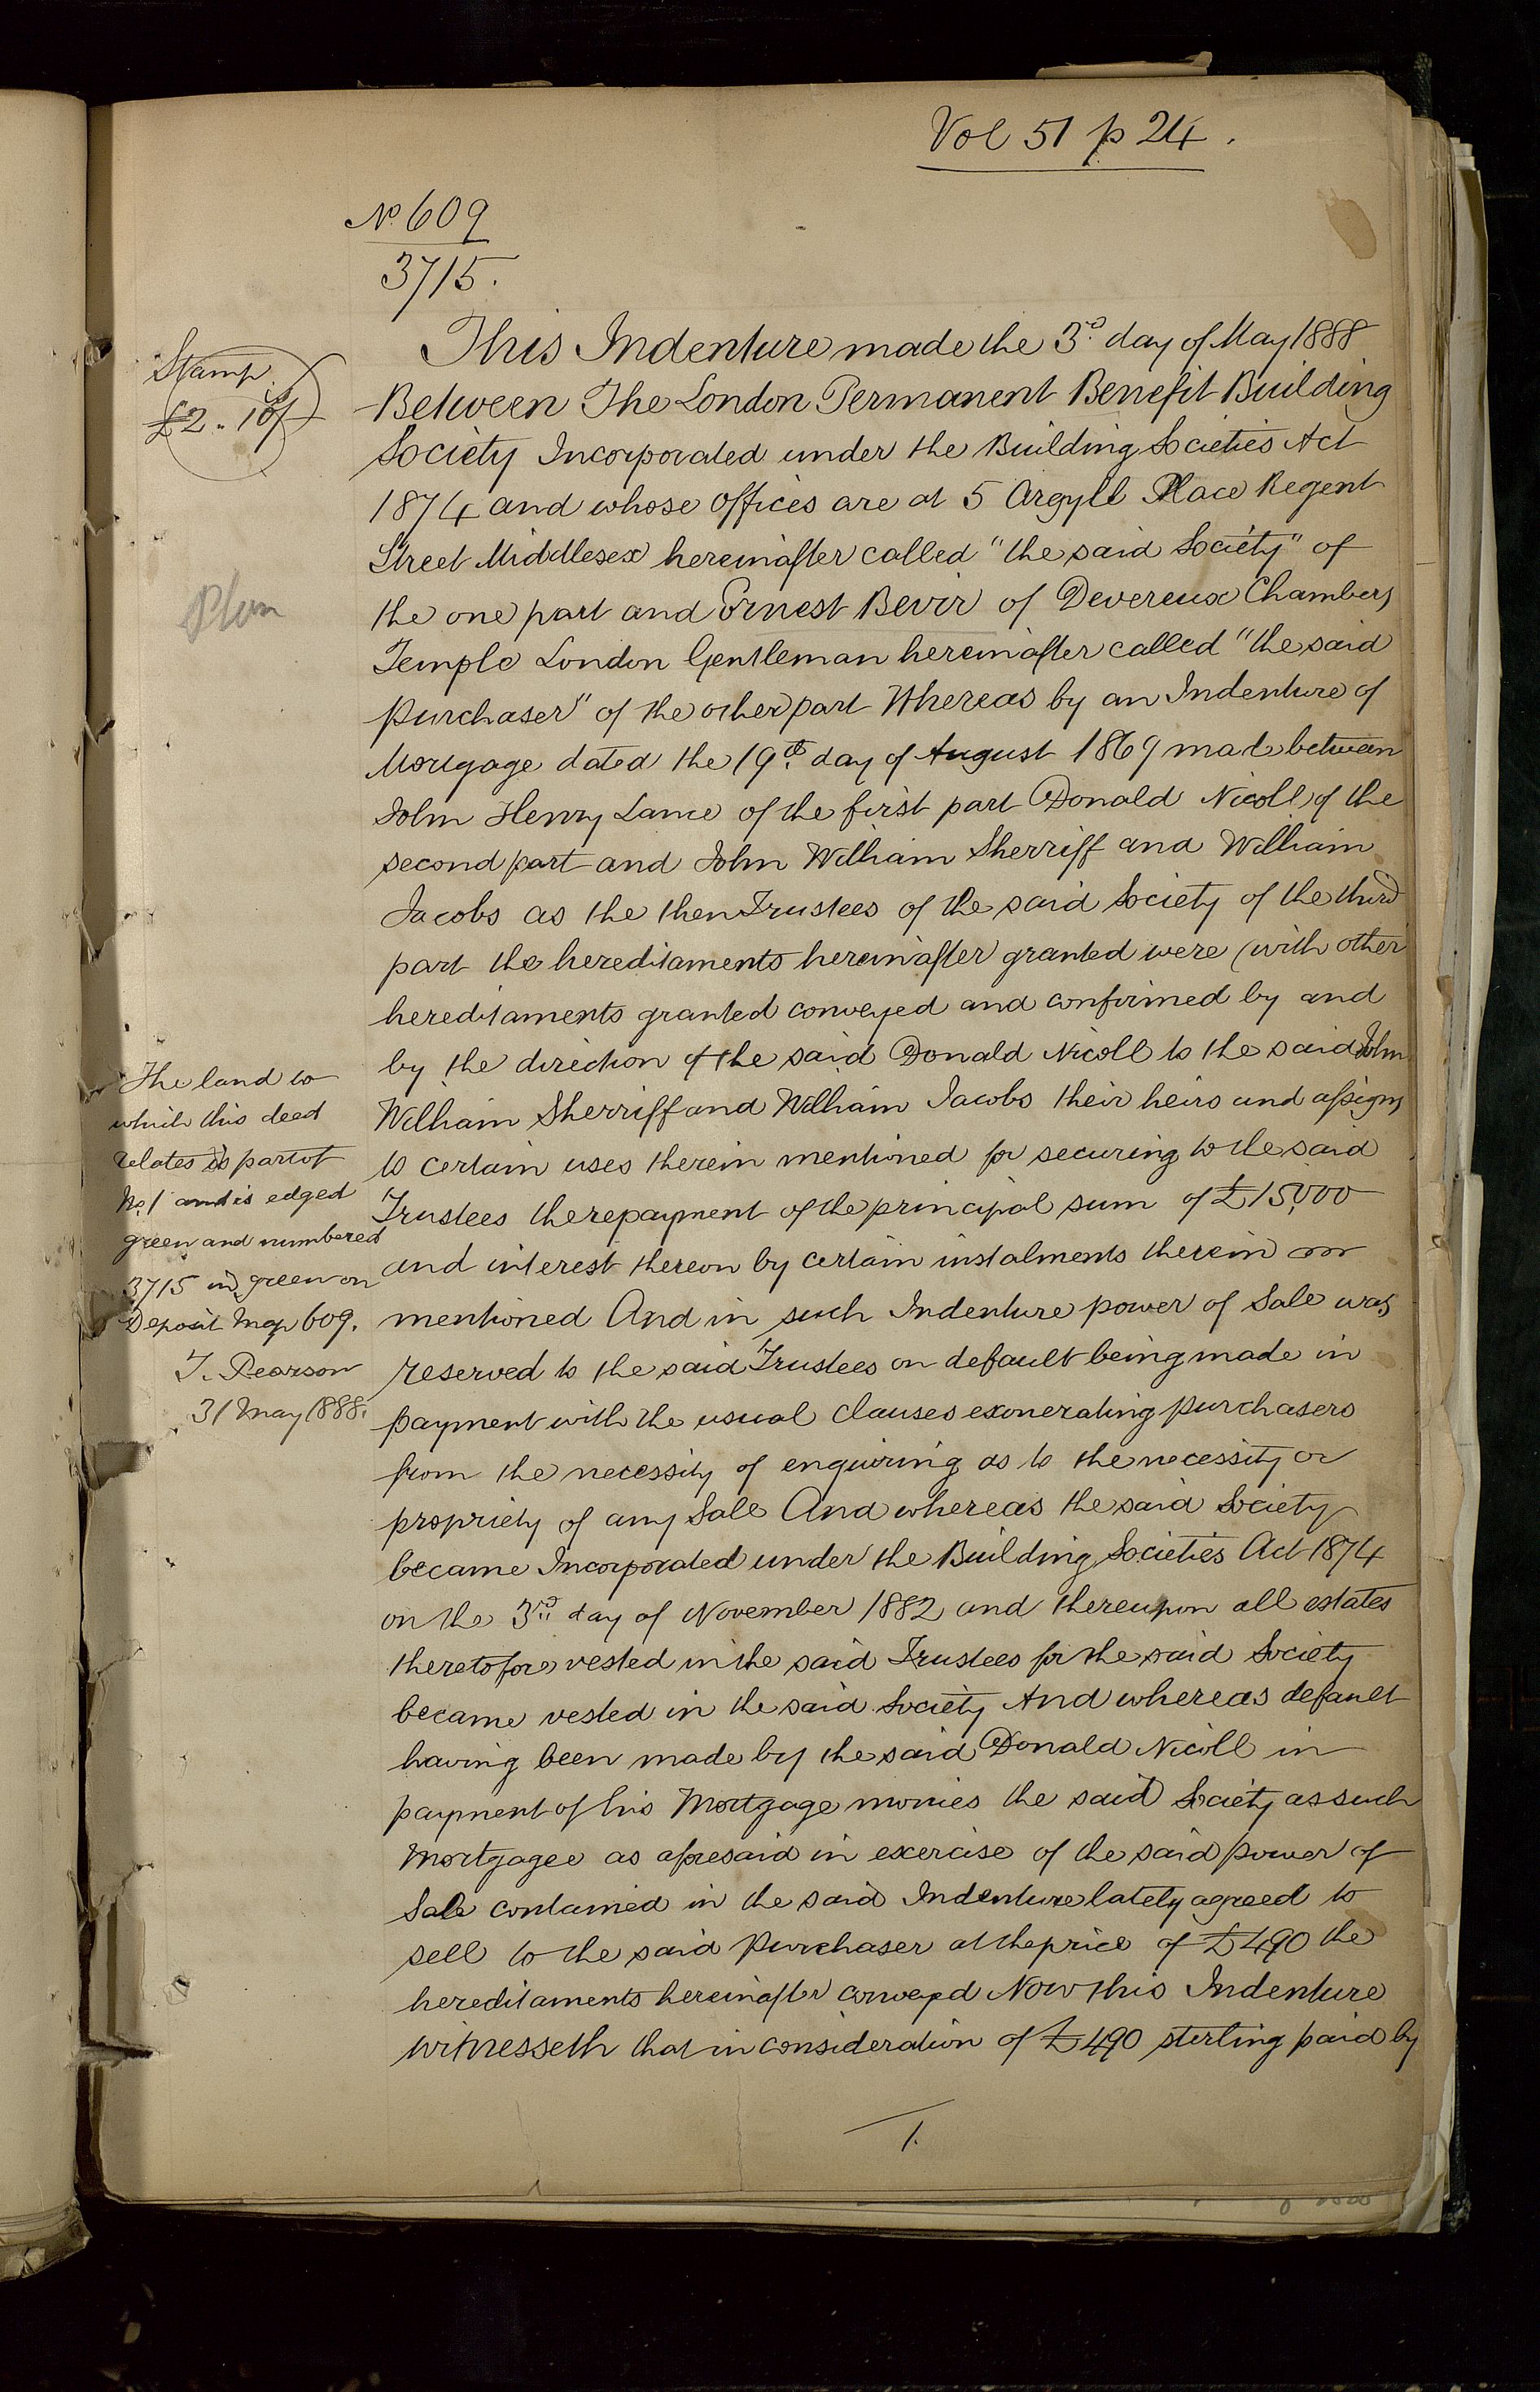 Vol 51 p 24.
No. 609
3715.
Stamp
£2. 10/
Plan
This Indenture made the 3rd day of May 1888
Between The London Permanent Benefit Building
Society Incorporated under the Building Societies Act
1874 and whose offices are at 5 Argyll Place Regent
Street Middlesex hereinafter called "the said Society" of
the one part and Ernest Bevir of Devereux Chambers
Temple London Gentleman hereinafter called "the said
Purchaser" of the other part Whereas by an Indenture of
Mortgage dated the 19th day of August 1869 made between
John Henry Lance of the first part Donald Nicoll of the
second part and John William Sherriff and William
Jacobs as the then Trustees of the said Society of the third
part the hereditaments hereinafter granted were (with other
hereditaments granted conveyed and confirmed by and
by the direction of the said Donald Nicoll to the said John
William Sherriff and William Jacobs their heirs and assigns
to certain uses therein mentioned for securing to the said
Trustees the repayment of the principal sum of £15,000
and interest thereon by certain instalments therein
mentioned And in such Indenture power of Sale was
reserved to the said Trustees on default being made in
payment with the usual clauses exonerating purchasers
from the necessity of enquiring as to the necessity or
propriety of any Sale And whereas the said Society
became Incorporated under the Building Societies Act 1874
on the 3rd day of November 1882 and thereupon all estates
theretofore vested in the said Trustees for the said Society
became vested in the said Society And whereas default
having been made by the said Donald Nicoll in
payment of his Mortgage monies the said Society as such
Mortgagee as aforesaid in exercise of the said power of
Sale contained in the said Indenture lately agreed to
sell to the said Purchaser at the price of £490 the
hereditaments hereinafter conveyed Now this Indenture
witnesseth that in consideration of £490 sterling paid by
The land to
which this deed
relates is part of
No. 1 and is edged
green and numbered
3715 in green on
Deposit Map 609.
T. Pearson
31 May 1888.
1.